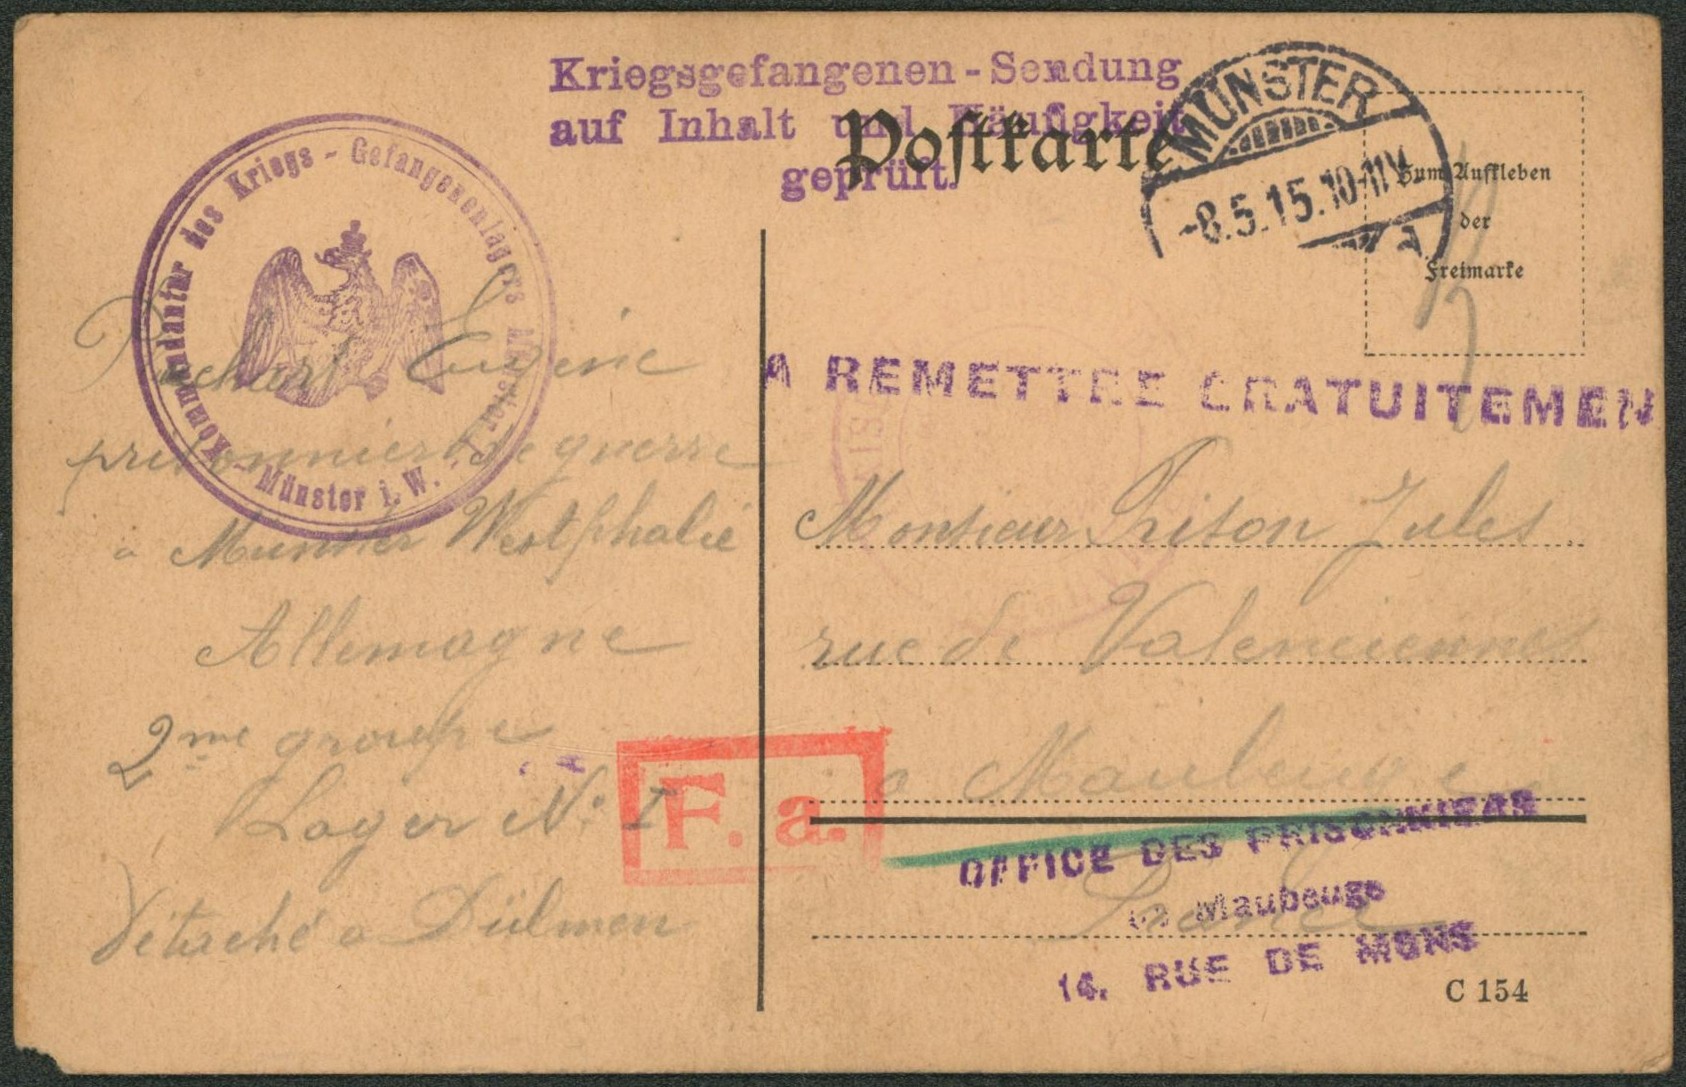 Kriegsgefangenen - Sendung
auf Inhalt und Häufigkeit
geprüft.
Postkarte
MÜNSTER
-8.5.15.10-11V.
Zum Aufkleben
der
Freimarke
Kommandantur des Kriegs - Gefangenenlagers Münster I. - Münster i. W. -
A REMETTRE GRATUITEMEN
Eugène
prisonnier de guerre
à Munster Westphalie
Allemagne
2me groupe
Lager No I
Détaché à Dülmen
F. a.
Monsieur Prison Jules
rue de Valenciennes
à Maubeuge
France
OFFICE DES PRISONNIERS
de Maubeuge
14, RUE DE MONS
C 154